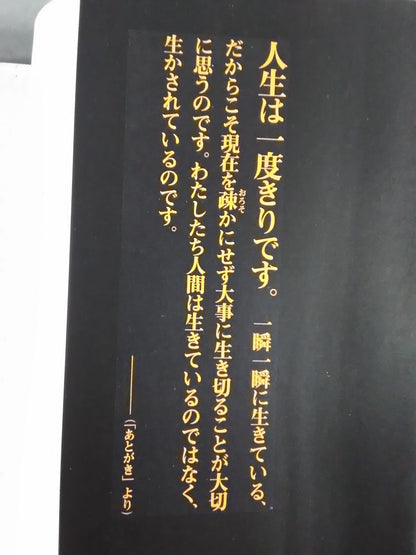 人生は一度きりです。 一瞬一瞬に生きている、
だからこそ現在を疎かにせず大事に生き切ることが大切
に思うのです。わたしたち人間は生きているのではなく、
生かされているのです。
――(「あとがき」より)